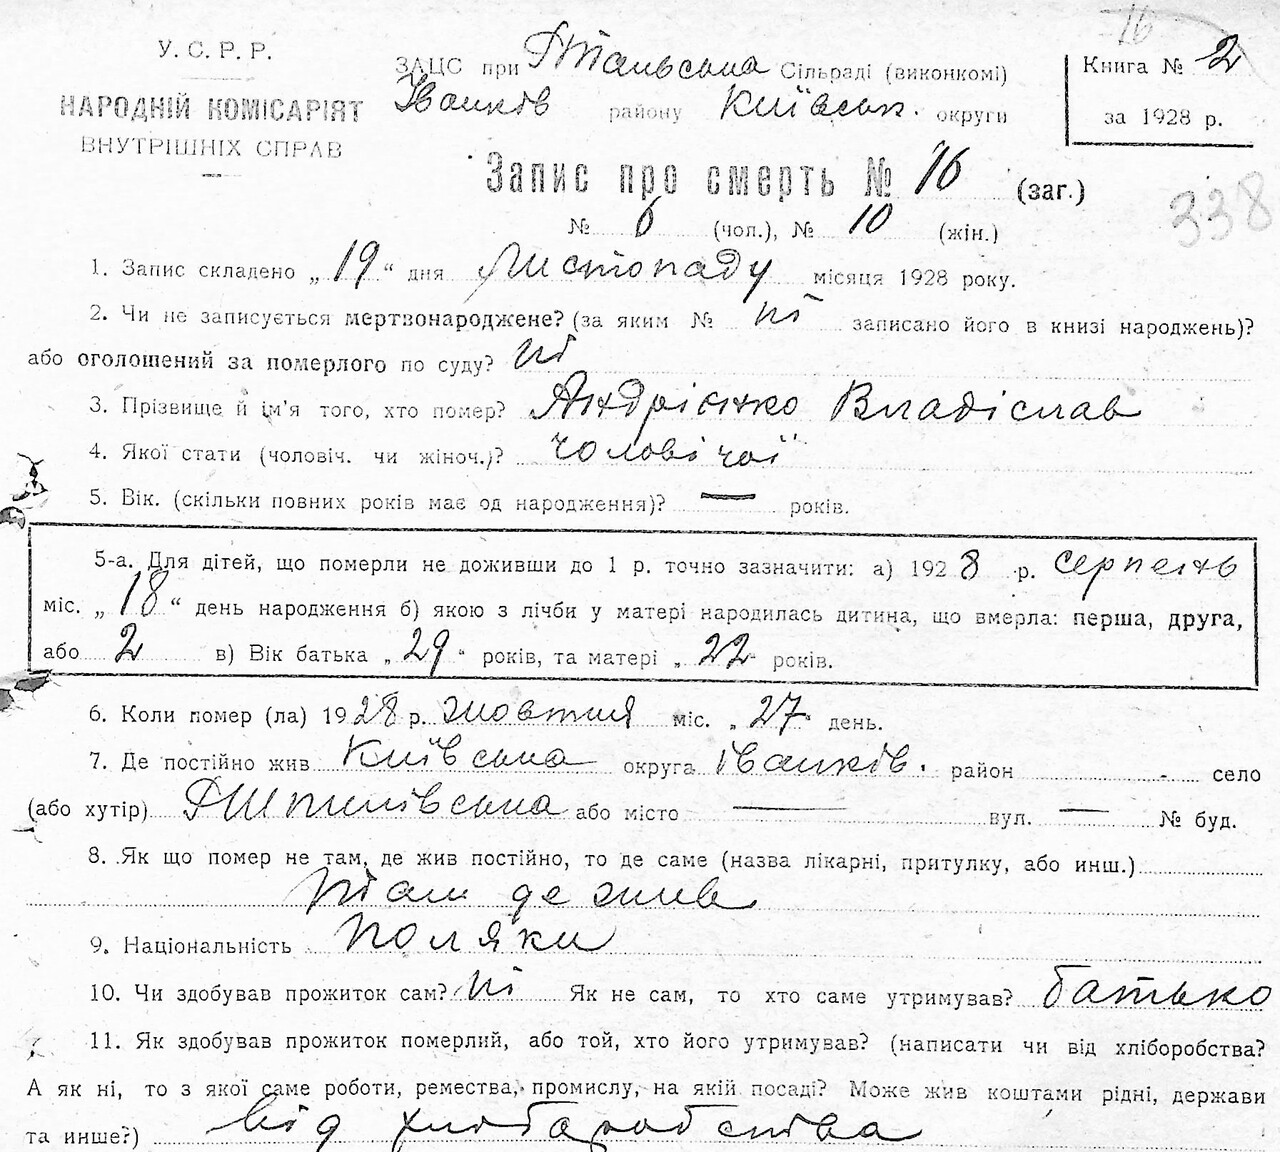 16
У. С. Р. Р.
НАРОДНІЙ КОМІСАРІЯТ
ВНУТРІШНІХ СПРАВ
ЗАЦС при Сільраді (виконкомі)
Іванків району Київськ. округи
Книга № 2
за 1928 р.
Запис про смерть № 16 (заг.)
№ 6 (чол.), № 10 (жін.)
338
1. Запис складено „ 19 “ дня Листопаду місяця 1928 року.
2. Чи не записується мертвонароджене? (за яким № ні записано його в книзі народжень)?
або оголошений за померлого по суду? ні
3. Прізвище й ім’я того, хто помер? Андрієнко Владіслав
4. Якої стати (чоловіч. чи жіноч.)? чоловічої
5. Вік. (скільки повних років має од народження)? — років.
5-а. Для дітей, що померли не доживши до 1 р. точно зазначити: а) 1928 р. серпень
міс. „ 18 “ день народження б) якою з лічби у матері народилась дитина, що вмерла: перша, друга,
або 2 в) Вік батька „ 29 “ років, та матері „ 22 “ років.
6. Коли помер (ла) 1928 р. жовтня міс. „ 27 “ день.
7. Де постійно жив Київська округа Іванків. район село
(або хутір) або місто — вул. — № буд.
8. Як що помер не там, де жив постійно, то де саме (назва лікарні, притулку, або инш.)
там де жив
9. Національність поляки
10. Чи здобував прожиток сам? ні Як не сам, то хто саме утримував? батько
11. Як здобував прожиток померлий, або той, хто його утримував? (написати чи від хліборобства?
А як ні, то з якої саме роботи, ремества, промислу, на якій посаді? Може жив коштами рідні, держави
та инше?) від хліборобства